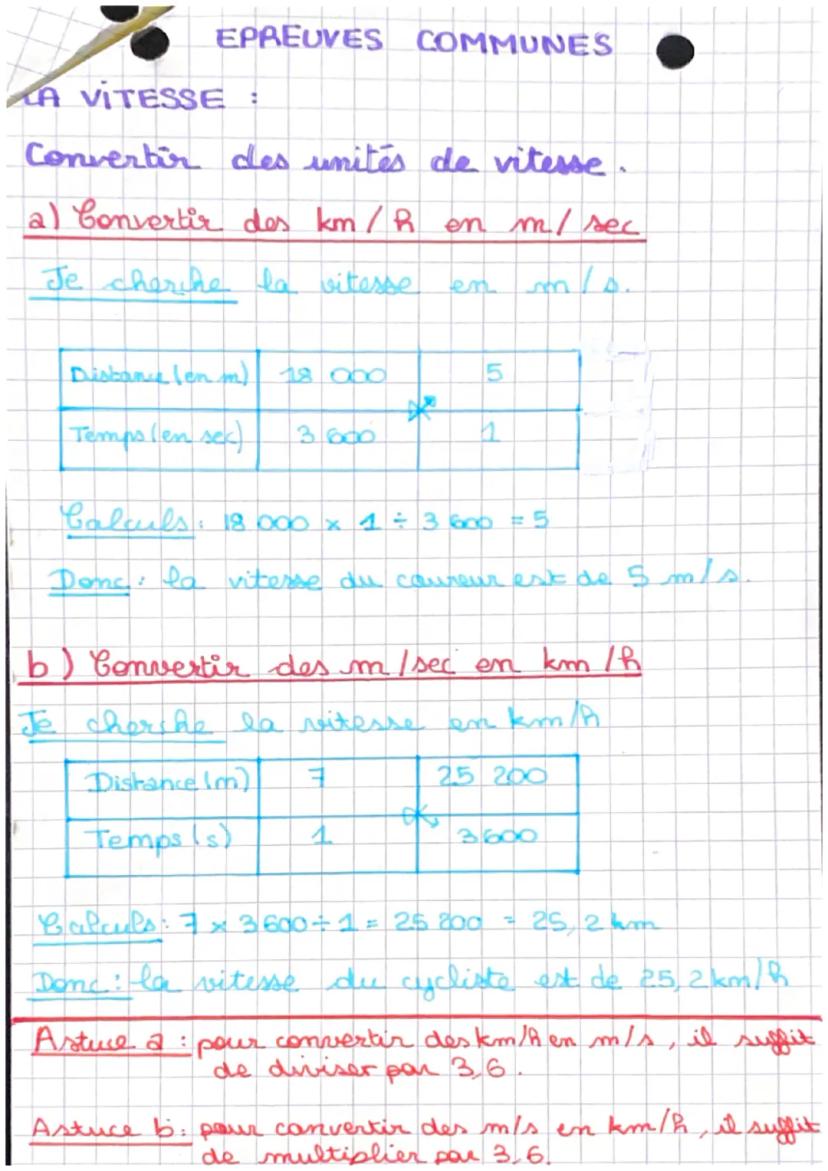 EPREUVES COMMUNES
LA VITESSE :
Convertir des unités de vitesse.
a) Convertir des km/h en m/sec
Je cherche la vitesse en m/s.
Distance (en m) 18 000 5
Temps (en sec) 3 600 1
Calculs : 18 000 x 1 ÷ 3 600 = 5
Donc : la vitesse du coureur est de 5 m/s.
b) Convertir des m/sec en km/h
Je cherche la vitesse en km/h
Distance (m) 7 25 200
Temps (s) 1 3600
Calculs : 7 x 3600 ÷ 1 = 25 200 = 25,2 km
Donc : la vitesse du cycliste est de 25,2 km/h
Astuce a : pour convertir des km/h en m/s, il suffit
de diviser par 3,6.
Astuce b : pour convertir des m/s en km/h, il suffit
de multiplier par 3,6.